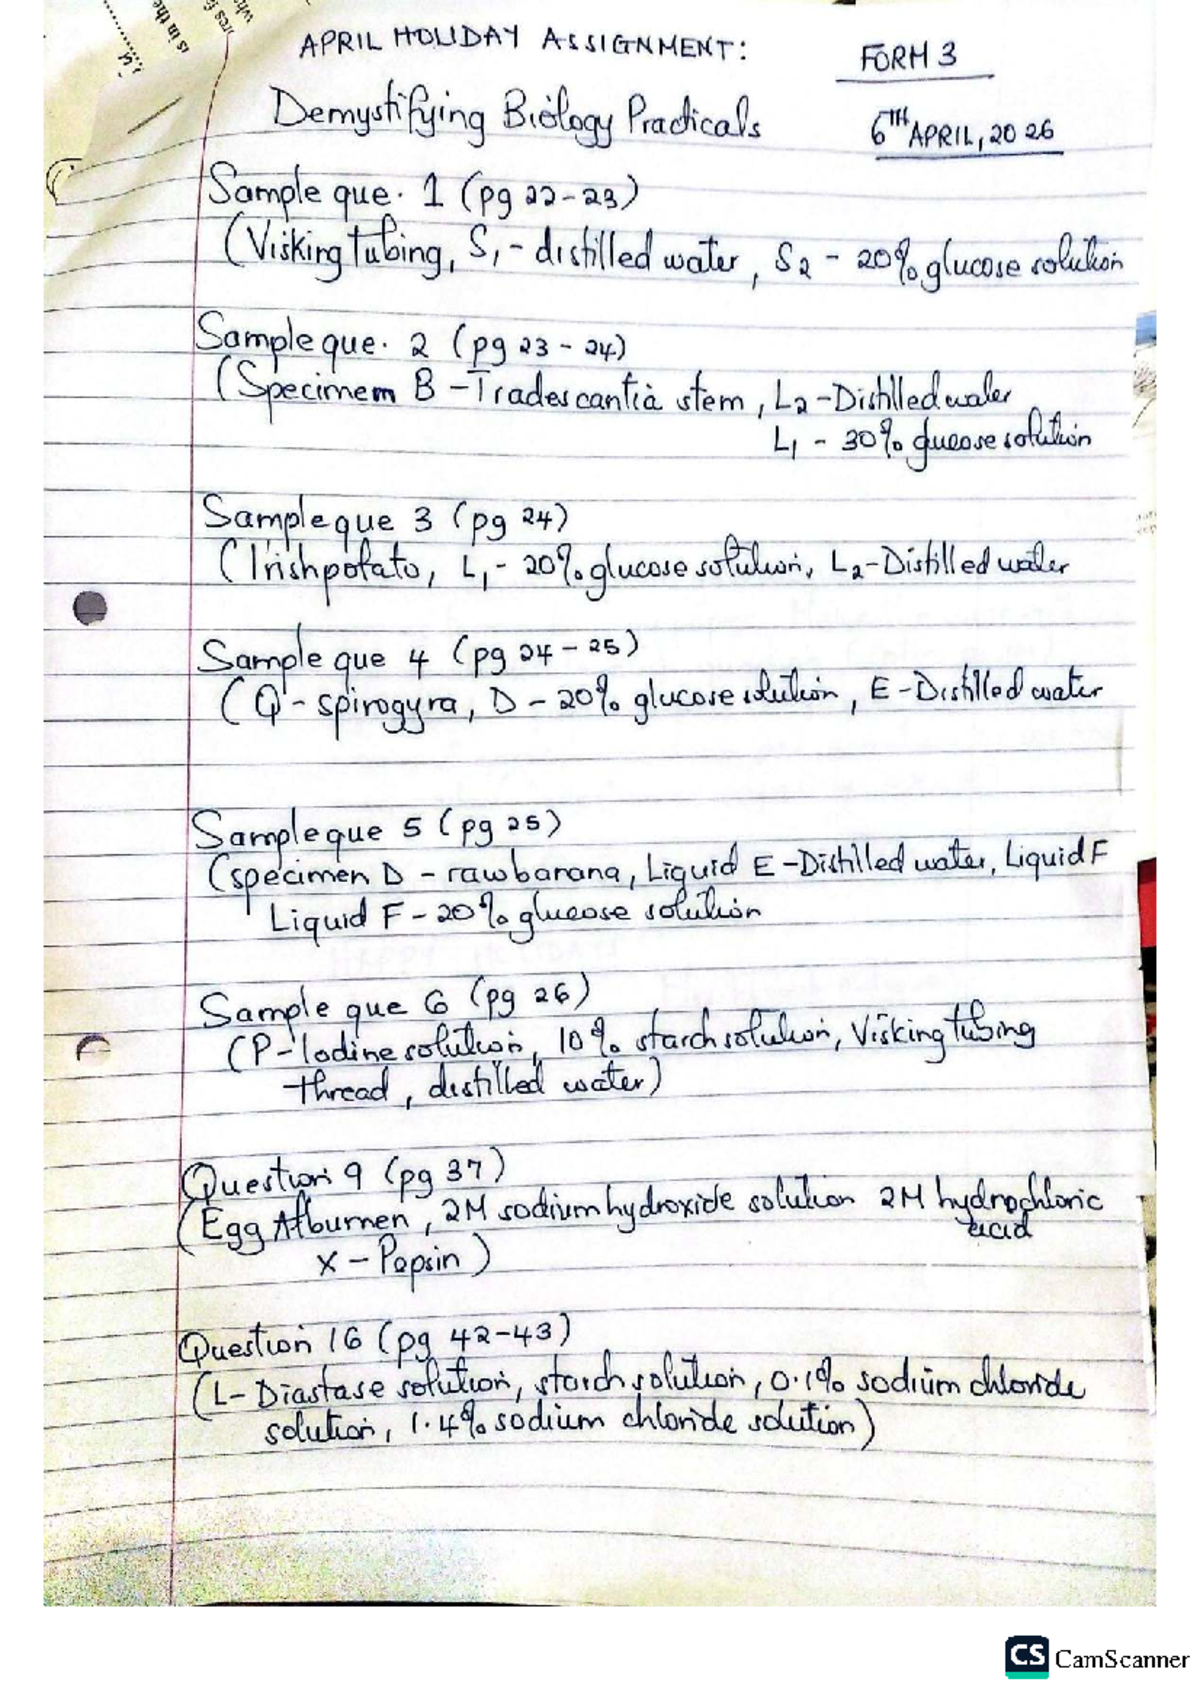 APRIL HOLIDAY ASSIGNMENT:
FORM 3
Demystifying Biology Practicals
6TH APRIL, 2026
Sample que. 1 (pg 22-23)
(Visking tubing, S1 - distilled water, S2 - 20% glucose solution
Sample que. 2 (pg 23 - 24)
(Specimem B - Tradescantia stem, L2 - Distilled water
L1 - 30% glucose solution
Sample que 3 (pg 24)
(Irish potato, L1 - 20% glucose solution, L2 - Distilled water
Sample que 4 (pg 24 - 25)
(Q - spirogyra, D - 20% glucose solution, E - Distilled water
Sample que 5 (pg 25)
(specimen D - raw banana, Liquid E - Distilled water, Liquid F
Liquid F - 20% glucose solution
Sample que 6 (pg 26)
(P - Iodine solution, 10% starch solution, Visking tubing
thread, distilled water)
Question 9 (pg 37)
(Egg Albumen, 2M sodium hydroxide solution 2M hydrochloric
acid
X - Pepsin)
Question 16 (pg 42-43)
(L - Diastase solution, starch solution, 0.1% sodium chloride
solution, 1.4% sodium chloride solution)
is in the
CS CamScanner